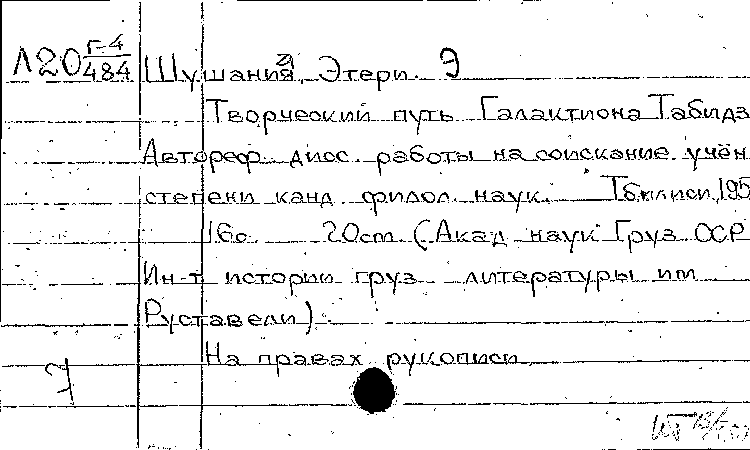 Л20 г-4/484 Шушания, Этери. Э
Творческий путь Галактиона Табидз
Автореф. дисс. работы на соискание учён
степени канд. филол. наук. Тбилиси, 195
16с. 20см. (Акад. наук Груз. ССР
Ин-т истории груз. литературы им
Руставели).
На правах рукописи